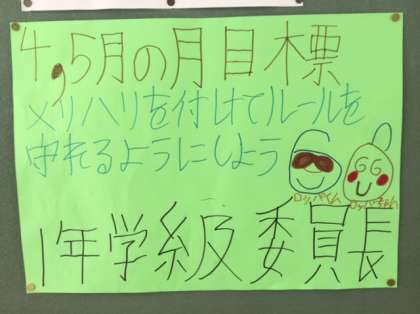 4,5月の月目標
メリハリを付けてルールを
守れるようにしよう
1年学級委員長